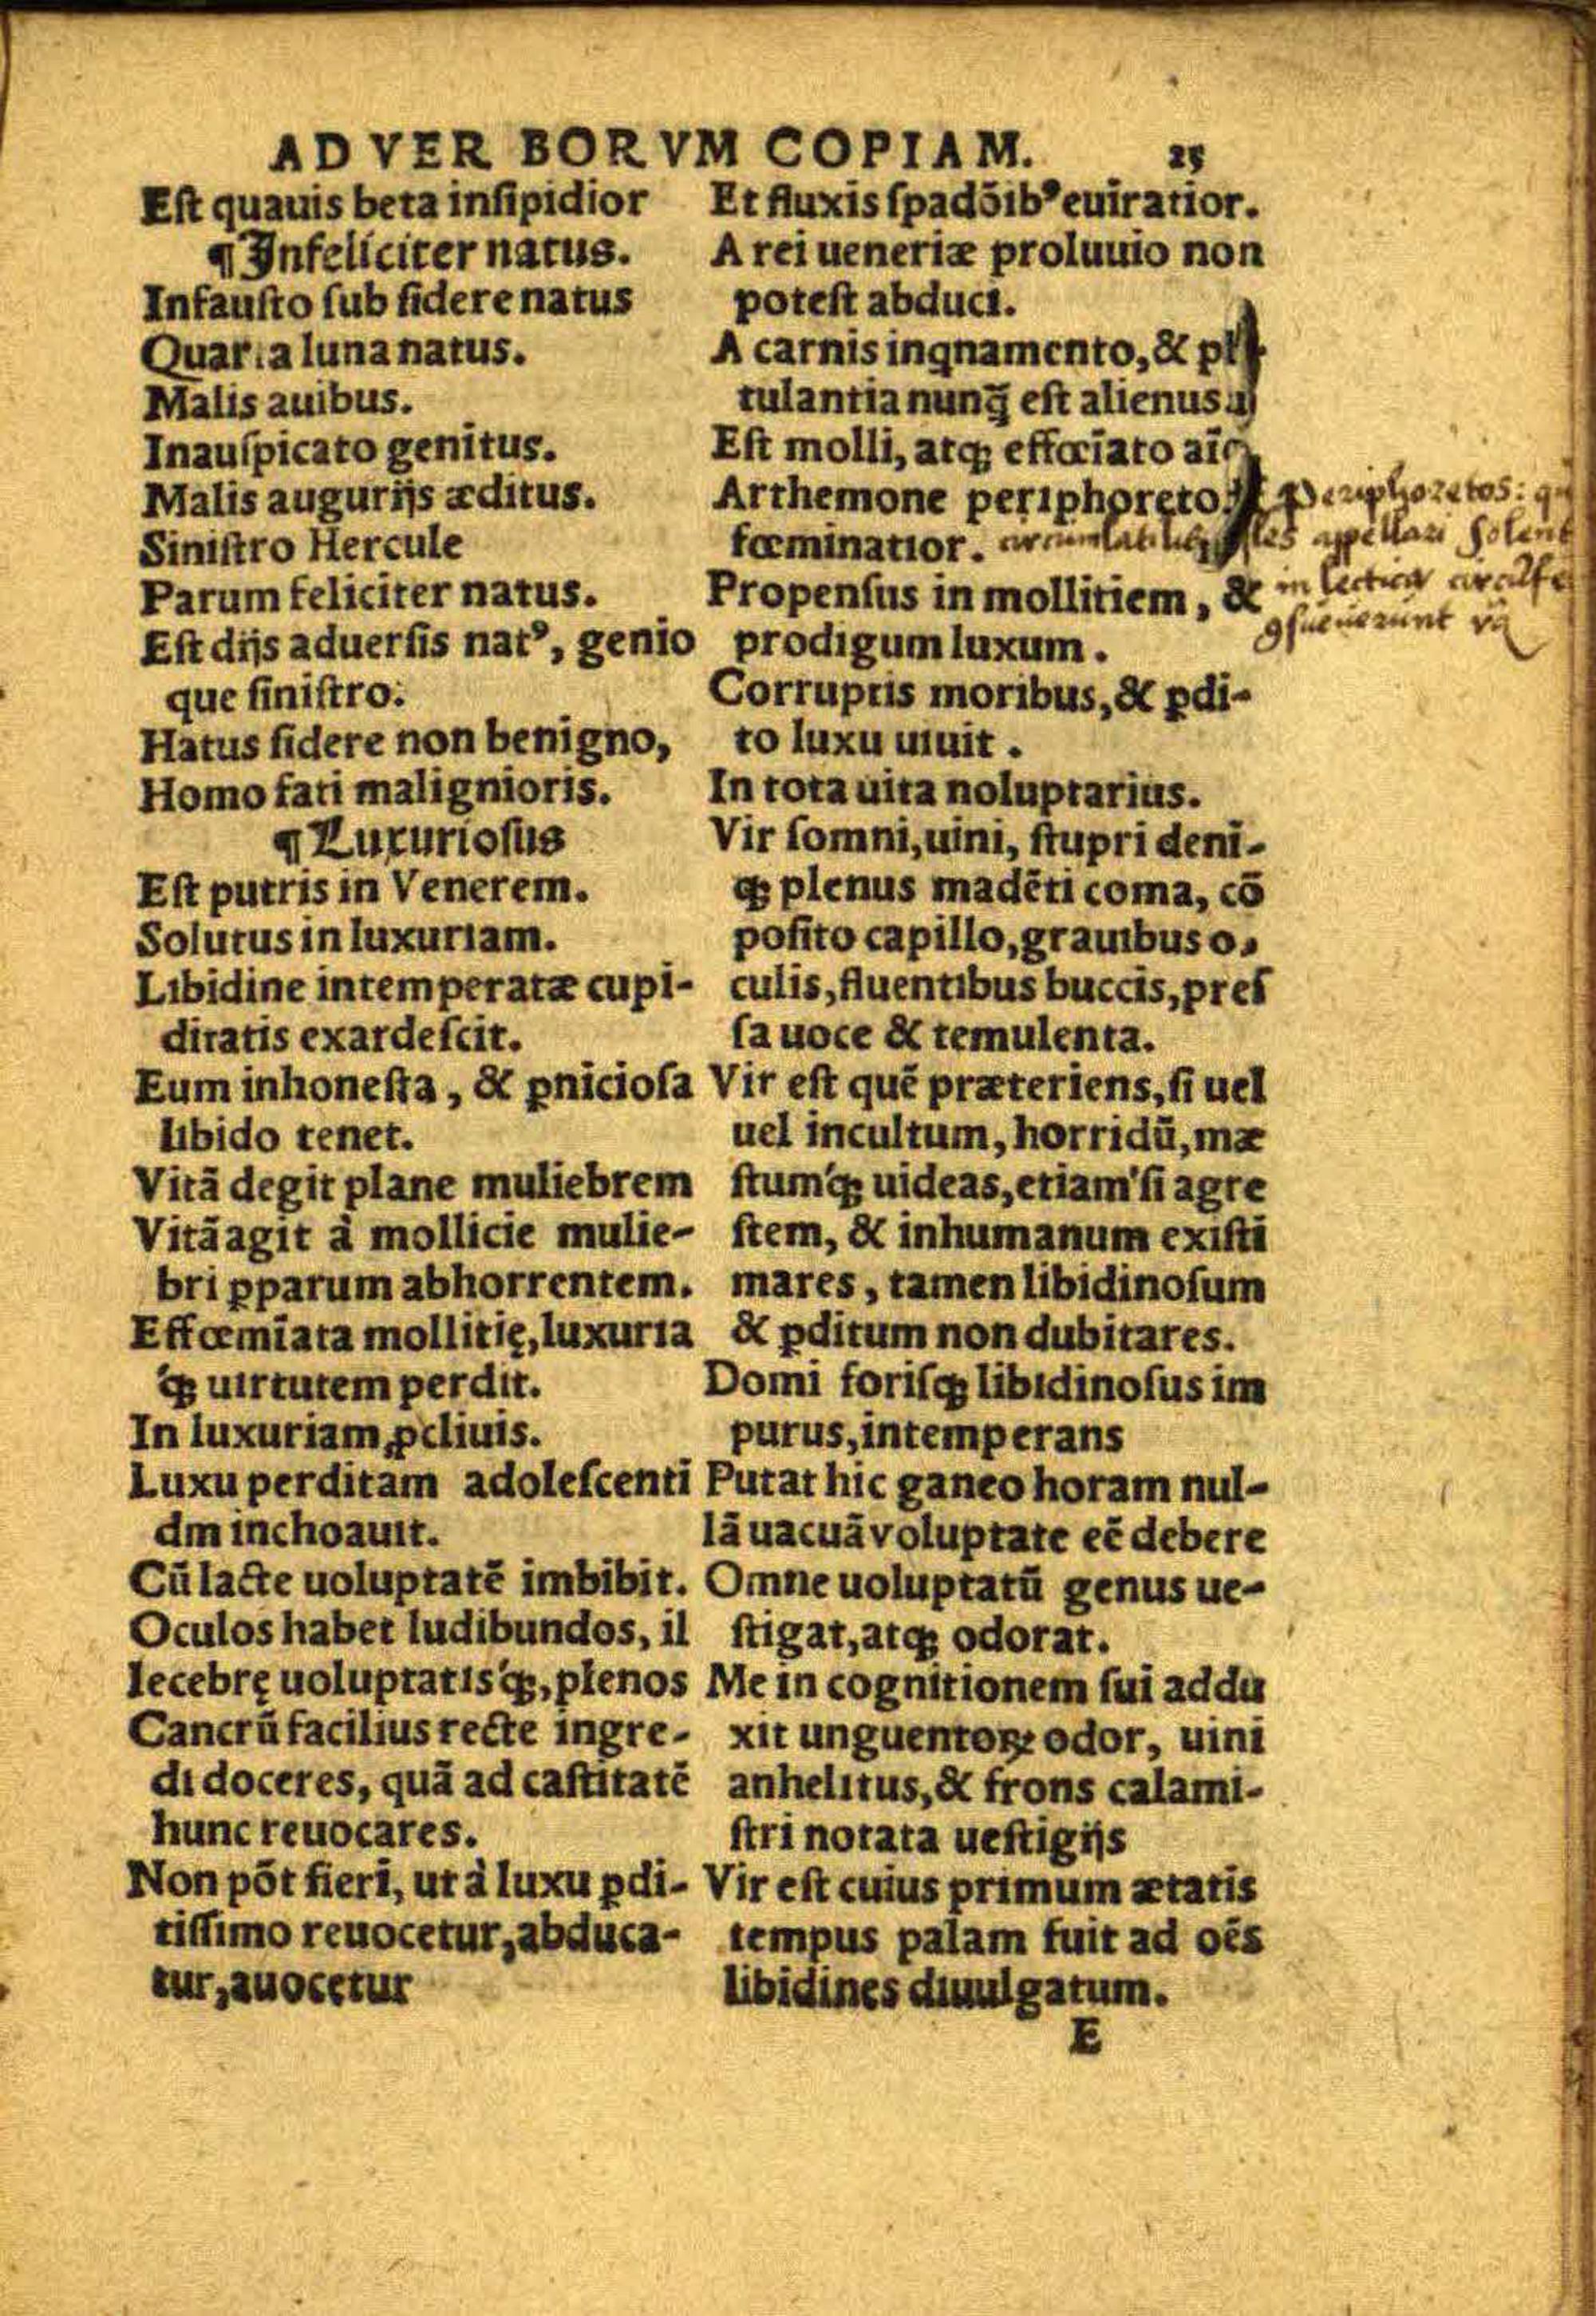 AD VER BORVM COPIAM. 25
Est quauis beta insipidior
¶ Infeliciter natus.
Infausto sub sidere natus
Quarta luna natus.
Malis auibus.
Inauspicato genitus.
Malis augurijs æditus.
Sinistro Hercule
Parum feliciter natus.
Est dijs aduersis natꝰ, genio
que sinistro.
Hatus sidere non benigno,
Homo fati malignioris.
¶ Luxuriosus
Est putris in Venerem.
Solutus in luxuriam.
Libidine intemperatæ cupi-
ditatis exardescit.
Eum inhonesta, & ꝑniciosa
libido tenet.
Vitã degit plane muliebrem
Vitã agit à mollicie mulie-
bri ꝑparum abhorrentem.
Effœmĩata mollitię, luxuria
q́ꝫ uirtutem perdit.
In luxuriam ꝓcliuis.
Luxu perditam adolescenti
dm inchoauit.
Cũ lacte uoluptatẽ imbibit.
Oculos habet ludibundos, il
lecebrę uoluptatisq́ꝫ, plenos
Cancrũ facilius recte ingre-
di doceres, quã ad castitatẽ
hunc reuocares.
Non põt fieri, ut à luxu ꝑdi-
tissimo reuocetur, abduca-
tur, auocetur
Et fluxis spadõibꝰ euiratior.
A rei ueneriæ proluuio non
potest abduci.
A carnis inqnamento, &
tulantia nunꝗ̃ est alienus
Est molli, atqꝫ effœĩato
Arthemone periphoreto
fœminatior.
Propensus in mollitiem, &
prodigum luxum.
Corruptis moribus, & ꝑdi-
to luxu uiuit.
In tota uita noluptarius.
Vir somni, uini, stupri deni-
qꝫ plenus madẽti coma, cõ
posito capillo, grauibus o,
culis, fluentibus buccis, pres
sa uoce & temulenta.
Vir est quẽ præteriens, si uel
uel incultum, horridũ, mæ
stumq́ꝫ uideas, etiam'si agre
stem, & inhumanum existi
mares, tamen libidinosum
& ꝑditum non dubitares.
Domi forisqꝫ libidinosus im
purus, intemperans
Putat hic ganeo horam nul-
lã uacuã voluptate eẽ debere
Omne uoluptatũ genus ue-
stigat, atqꝫ odorat.
Me in cognitionem sui addu
xit unguentoꝝ odor, uini
anhelitus, & frons calami-
stri notata uestigijs
Vir est cuius primum ætatis
tempus palam fuit ad oẽs
libidines diuulgatum.
E
Periphoretos:
appellari solent
in lectica